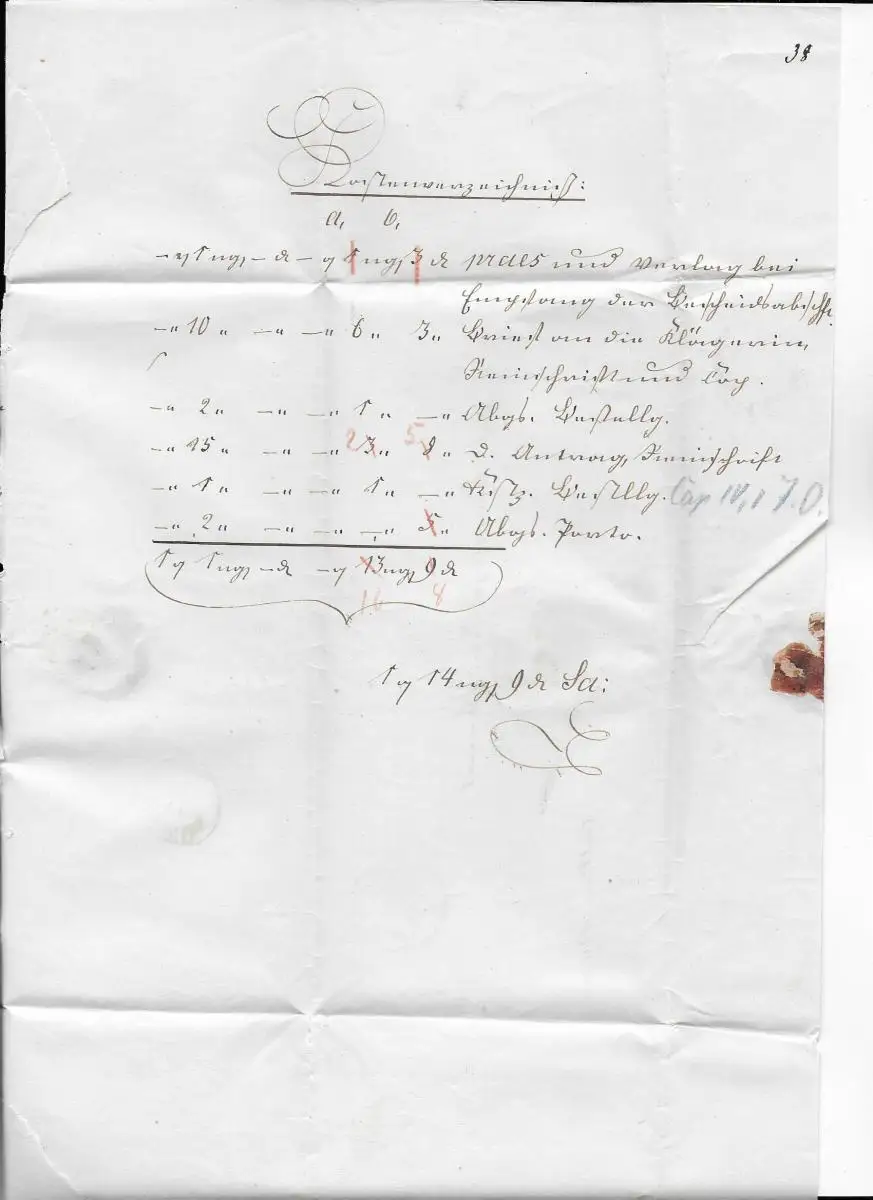 38
Kostenverzeichniß:
a, b,
— ₰ 1 ngr, — d — ₰ 1 ngr, 3 d praes und Verlag bei
Empfang der Bescheidsabschft.
—" 10 " —" —" 6 " 3 " Brief an die Klägerin,
Reinschrift und Cop.
—" 2 " —" —" 1 " —" Abgs. Bestellg.
—" 15 " —" —" 2 3 " 5 8 " d. Antrag, Reinschrift
—" 1 " —" —" 1 " —" Bestllg. Cap IV, 1 T.O.
—" 2 " —" —" —" 5 " Abgs. Porto.
1 ₰ 1 ngr, — d — ₰ 13 ngr, 9 d
8
1 ₰ 14 ngr 9 d Sa: